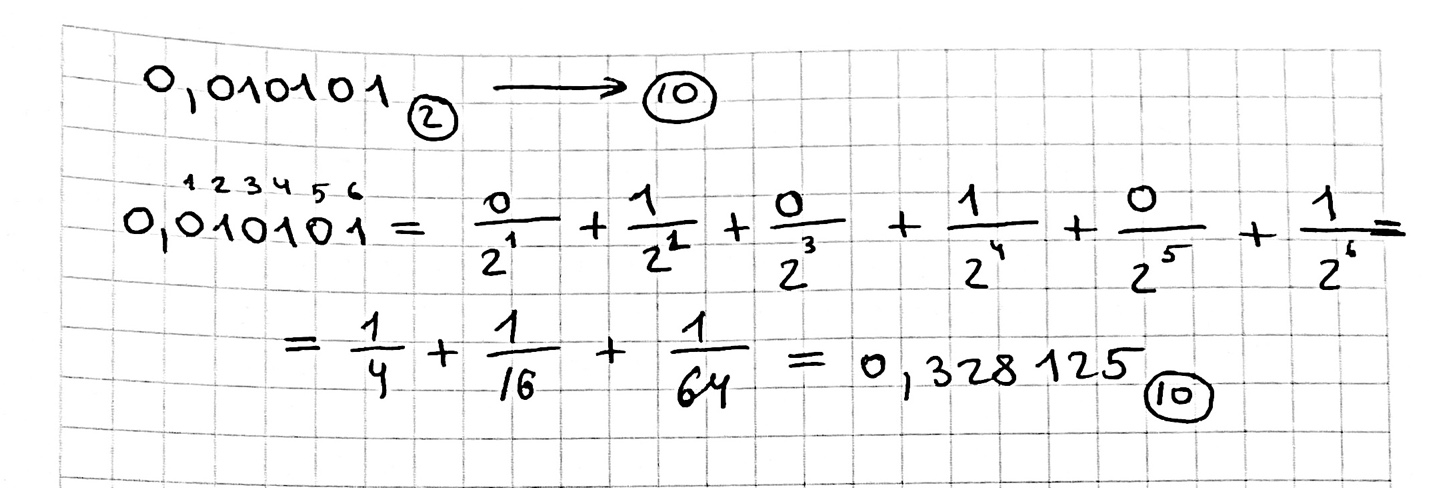 0,010101 ② ⟶ ⑩
1 2 3 4 5 6
0,010101 = 0/2¹ + 1/2² + 0/2³ + 1/2⁴ + 0/2⁵ + 1/2⁶ =
= 1/4 + 1/16 + 1/64 = 0,328125 ⑩